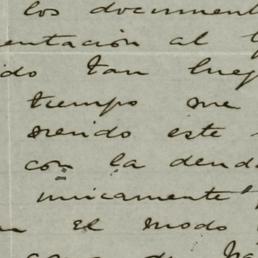 los document
entación al
ido tan lueg
tiempo me
siendo este
con la deud
unicamente
n el modo